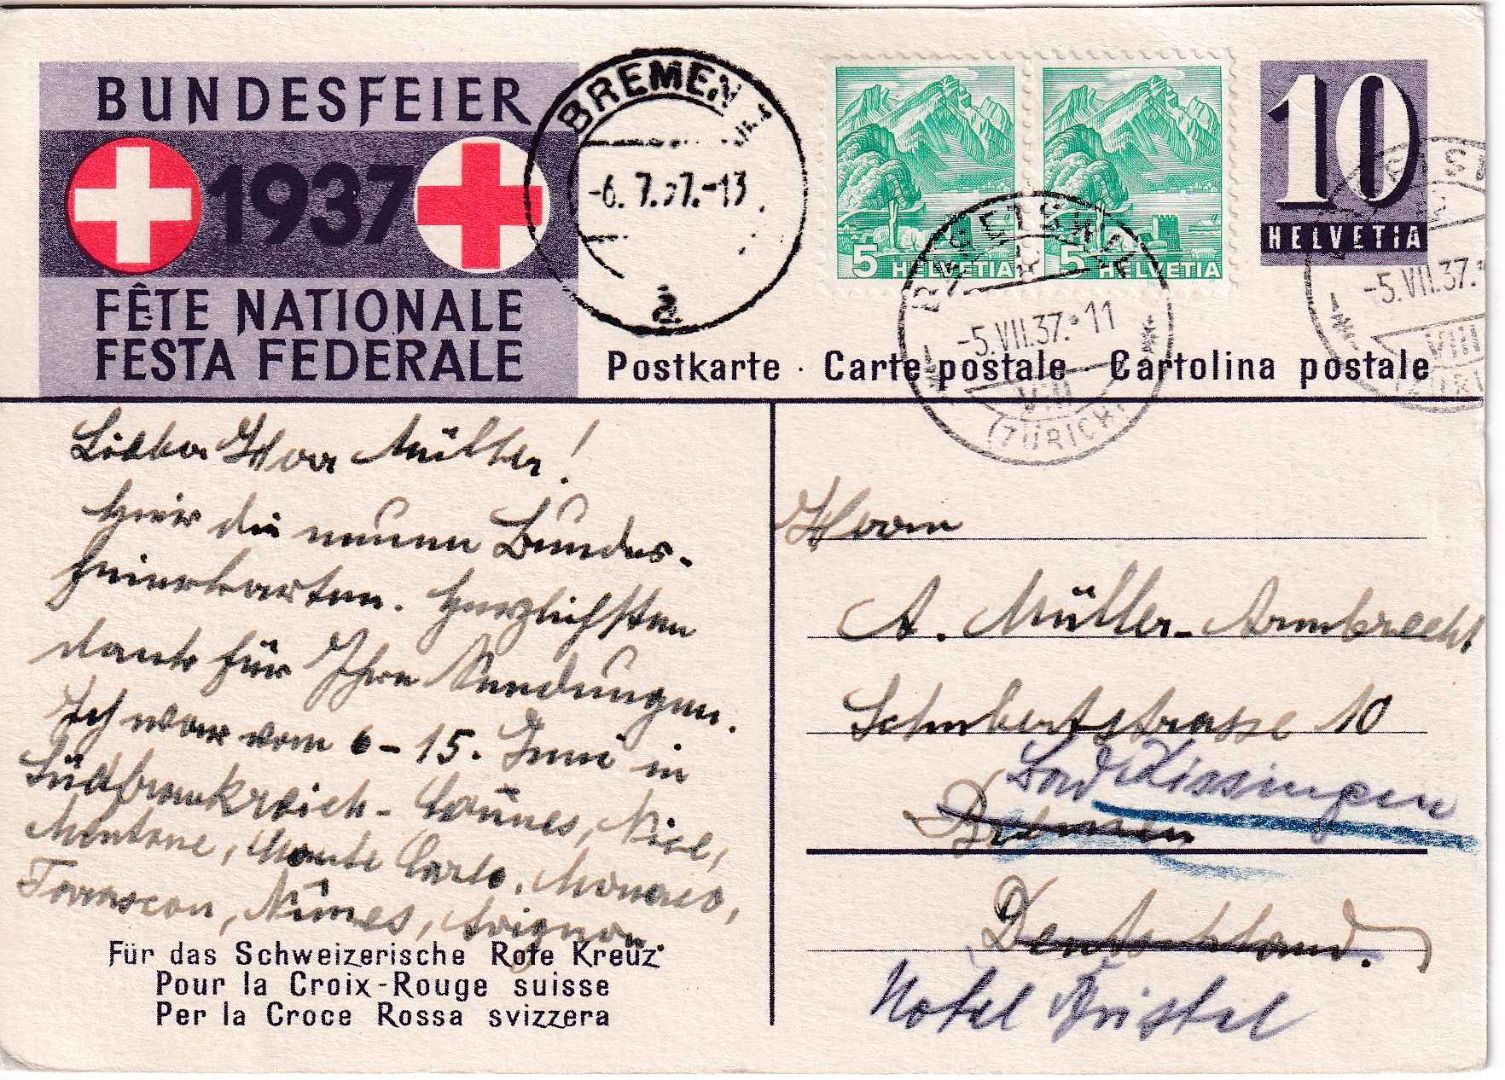 BUNDESFEIER
1937
FÊTE NATIONALE
FESTA FEDERALE
BREMEN 1
-6.7.37.-13
a
5 HELVETIA
5 HELVETIA
10
HELVETIA
-5.VII.37.-11
VIII
(ZÜRICH)
-5.VII.37.
VIII
Postkarte · Carte postale Cartolina postale
Lieber Herr Müller!
Hier die neuen Bundes-
feierkarten. Herzlichsten
Dank für Ihre Sendungen.
Ich war vom 6-15. Juni in
Südfrankreich - Cannes, Nice,
Mentone, Monte Carlo, Monaco,
Tarascon, Nîmes, Avignon.
Für das Schweizerische Rote Kreuz
Pour la Croix-Rouge suisse
Per la Croce Rossa svizzera
Herrn
A. Müller-Armbrecht
Schubertstrasse 10
Bad Kissingen
Bremen
Deutschland.
Hotel Bristol